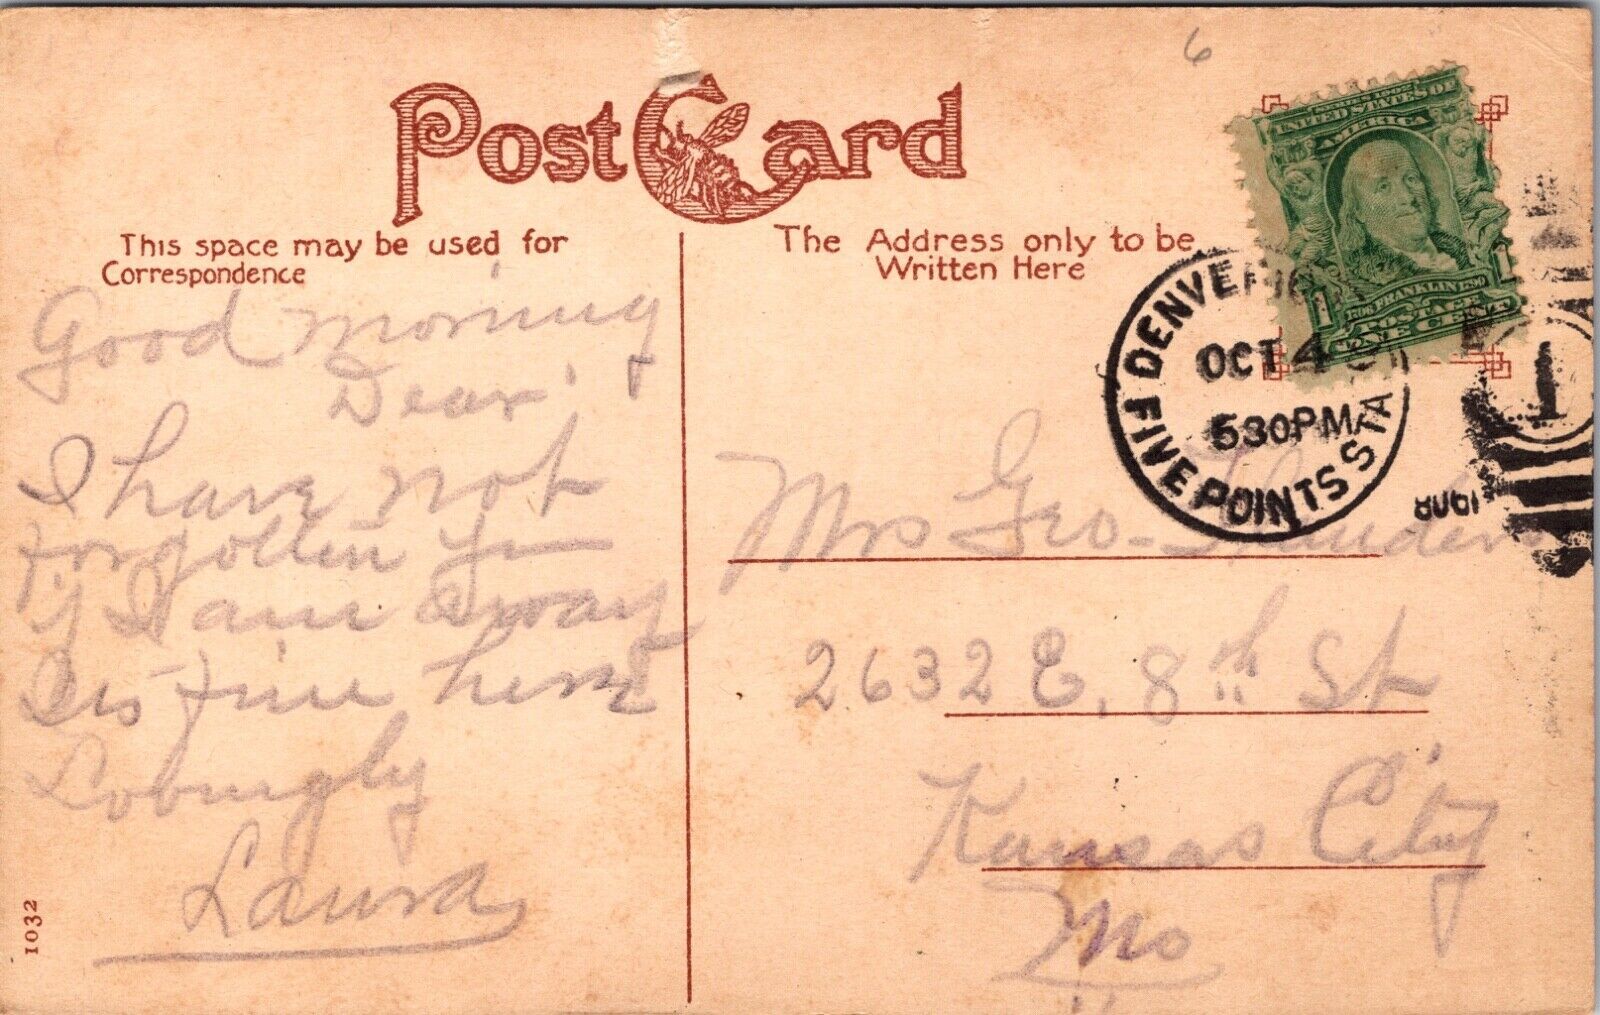 6
Post Card
This space may be used for
Correspondence
The Address only to be
Written Here
SERIES 1902
UNITED STATES OF
AMERICA
1706 FRANKLIN 1790
POSTAGE
ONE CENT
1 1
DENVER
OCT 4
530PM
FIVE POINTS STA
1908
1
Good morning
Dear!
I have not
forgotten you
if I am away
Its fine here
Lovingly
Laura
Mrs Geo
2632 E, 8th St
Kansas City
Mo
1032